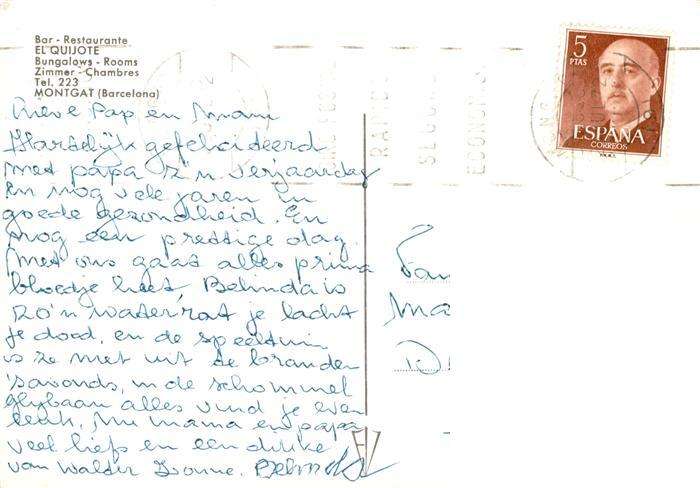 Bar - Restaurante
EL QUIJOTE
Bungalows - Rooms
Zimmer - Chambres
Tel. 223
MONTGAT (Barcelona)
5
PTAS
ESPAÑA
CORREOS
Lieve Pap en Mam
Hartelijk gefeliciteerd
met papa z'n verjaardag
en nog vele jaren in
goede gezondheid. En
nog een prettige dag.
Met ons gaat alles prima
bloedje heet, Belinda is
zo'n waterrat je lacht
je dood, en de speeltuin
is ze met uit te branden
's avonds, in de schommel
glijbaan alles vind je even
leuk, Nu mama en papa
veel liefs en een dikke
van Walter Ivonne. Belinda
Fam
Ma